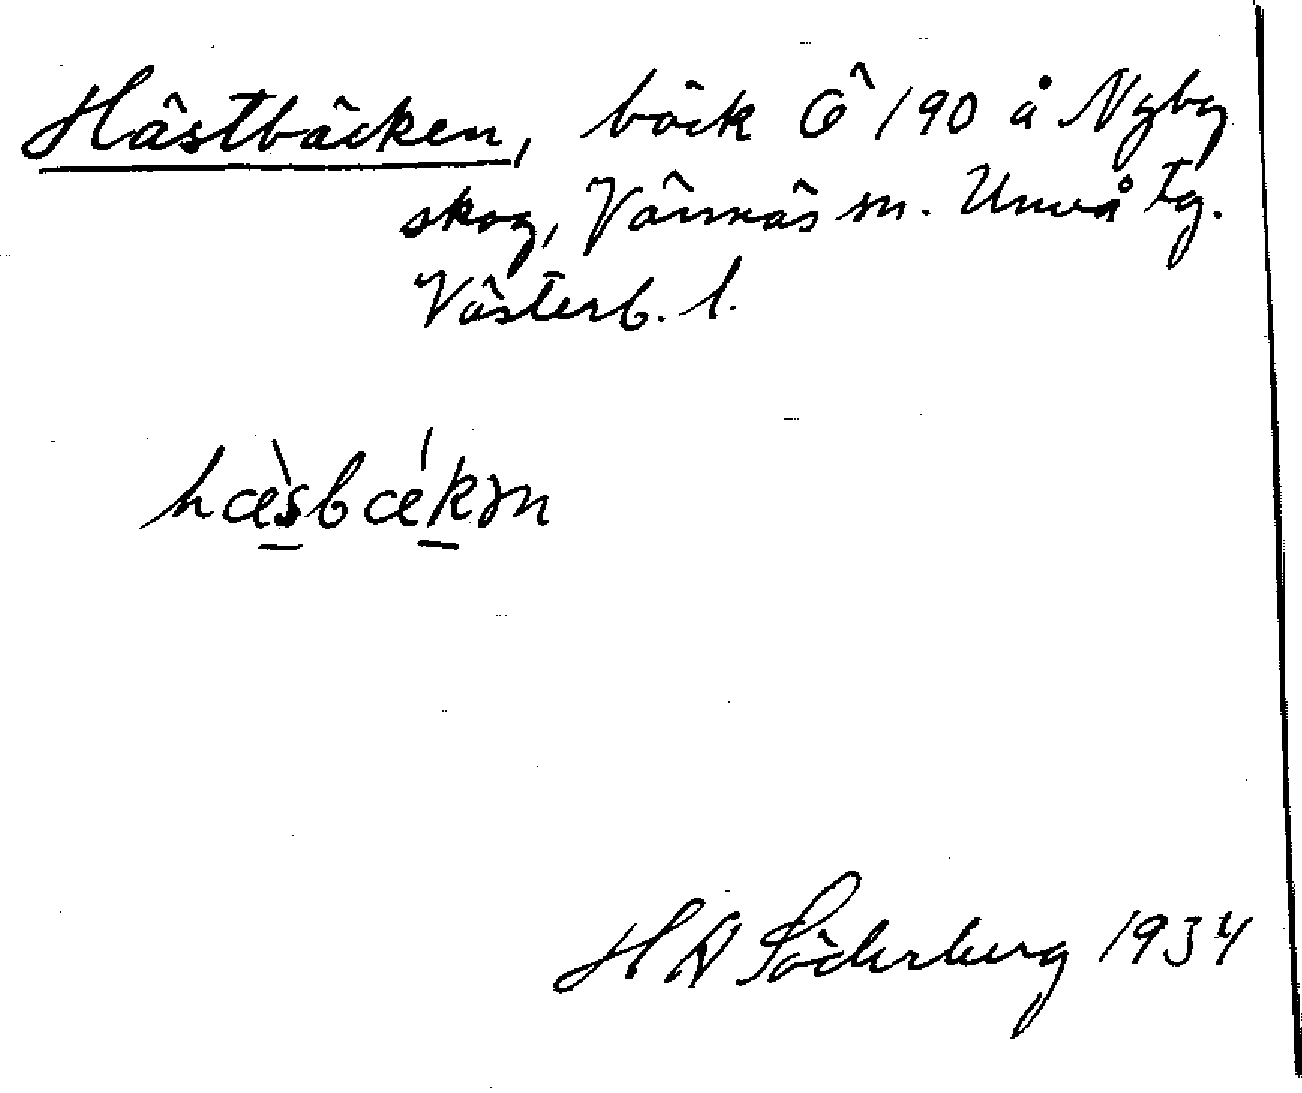 Hästbäcken, bäck Ö 190 å Nyby
skog, Vännäs sn. Umeå tg.
Västerb. l.
hæ̀sbǽkən
H W Söderberg 1934